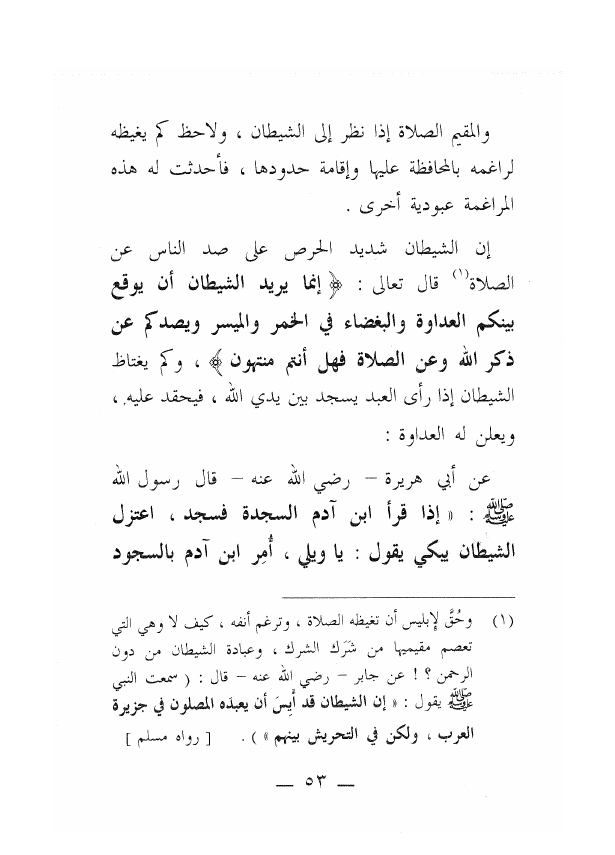 والمقيم الصلاة إذا نظر إلى الشيطان ، ولاحظ كم يغيظه
لراغمه بالمحافظة عليها وإقامة حدودها ، فأحدثت له هذه
المراغمة عبودية أخرى .
إن الشيطان شديد الحرص على صد الناس عن
الصلاة(١) قال تعالى : ﴿ إنما يريد الشيطان أن يوقع
بينكم العداوة والبغضاء في الخمر والميسر ويصدكم عن
ذكر الله وعن الصلاة فهل أنتم منتهون ﴾ ، وكم يغتاظ
الشيطان إذا رأى العبد يسجد بين يدي الله ، فيحقد عليه ،
ويعلن له العداوة :
عن أبي هريرة – رضي الله عنه – قال رسول الله
ﷺ : « إذا قرأ ابن آدم السجدة فسجد ، اعتزل
الشيطان يبكي يقول : يا ويلي ، أُمِر ابن آدم بالسجود
(١) وحُقَّ لإبليس أن تغيظه الصلاة ، وترغم أنفه ، كيف لا وهي التي
تعصم مقيميها من شَرَك الشرك ، وعبادة الشيطان من دون
الرحمن ؟ ! عن جابر – رضي الله عنه – قال : ( سمعت النبي
ﷺ يقول : « إن الشيطان قد أَيِسَ أن يعبدَه المصلون في جزيرة
العرب ، ولكن في التحريش بينهم » ) . [ رواه مسلم ]
— ٥٣ —